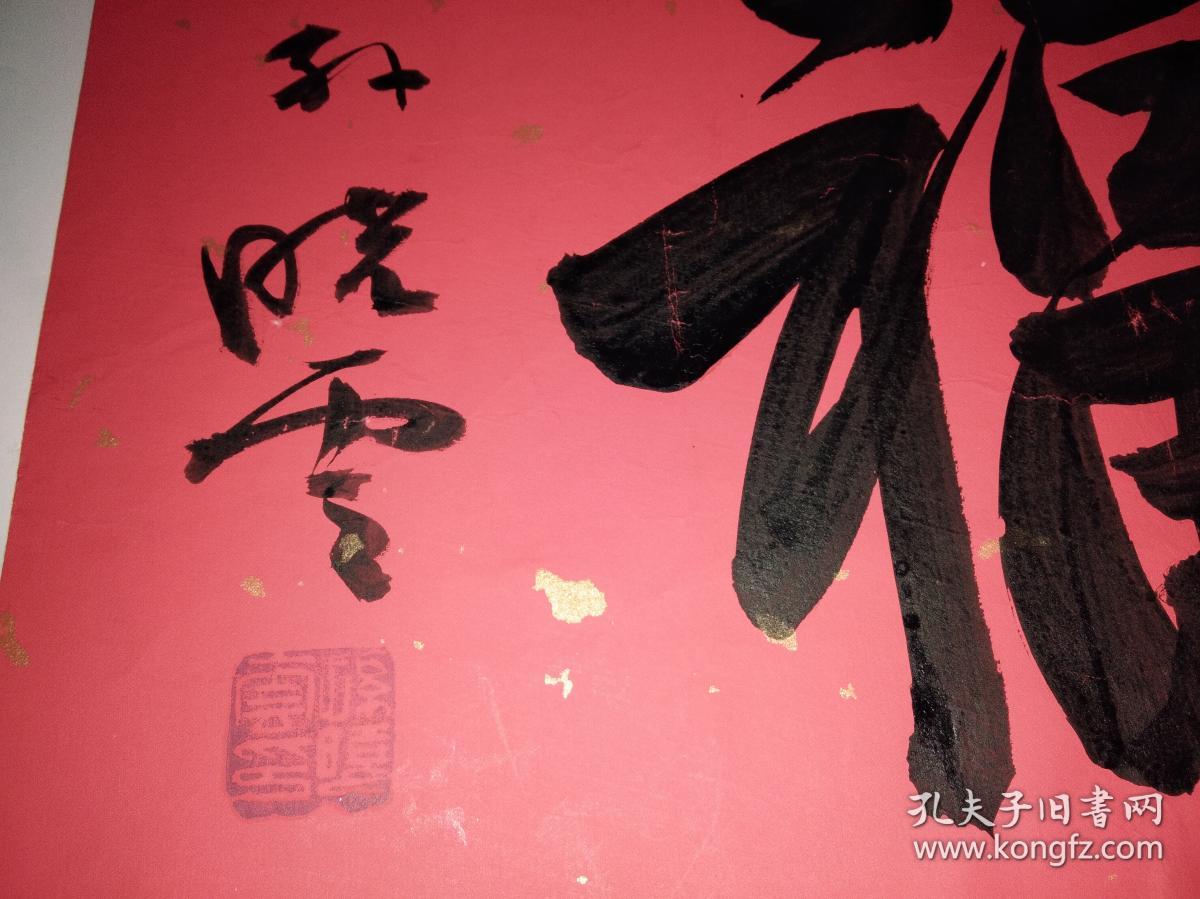 孙晓云
福
孔夫子旧书网
www.kongfz.com